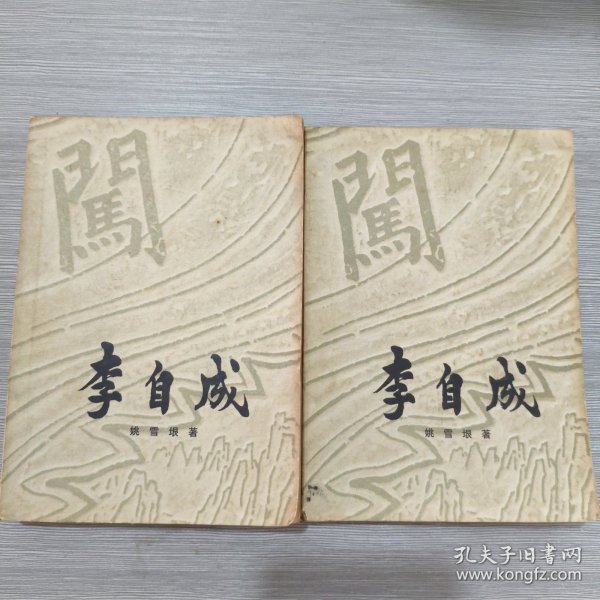 闖
李自成
姚雪垠著
闖
李自成
姚雪垠著
孔夫子旧书网
www.kongfz.com